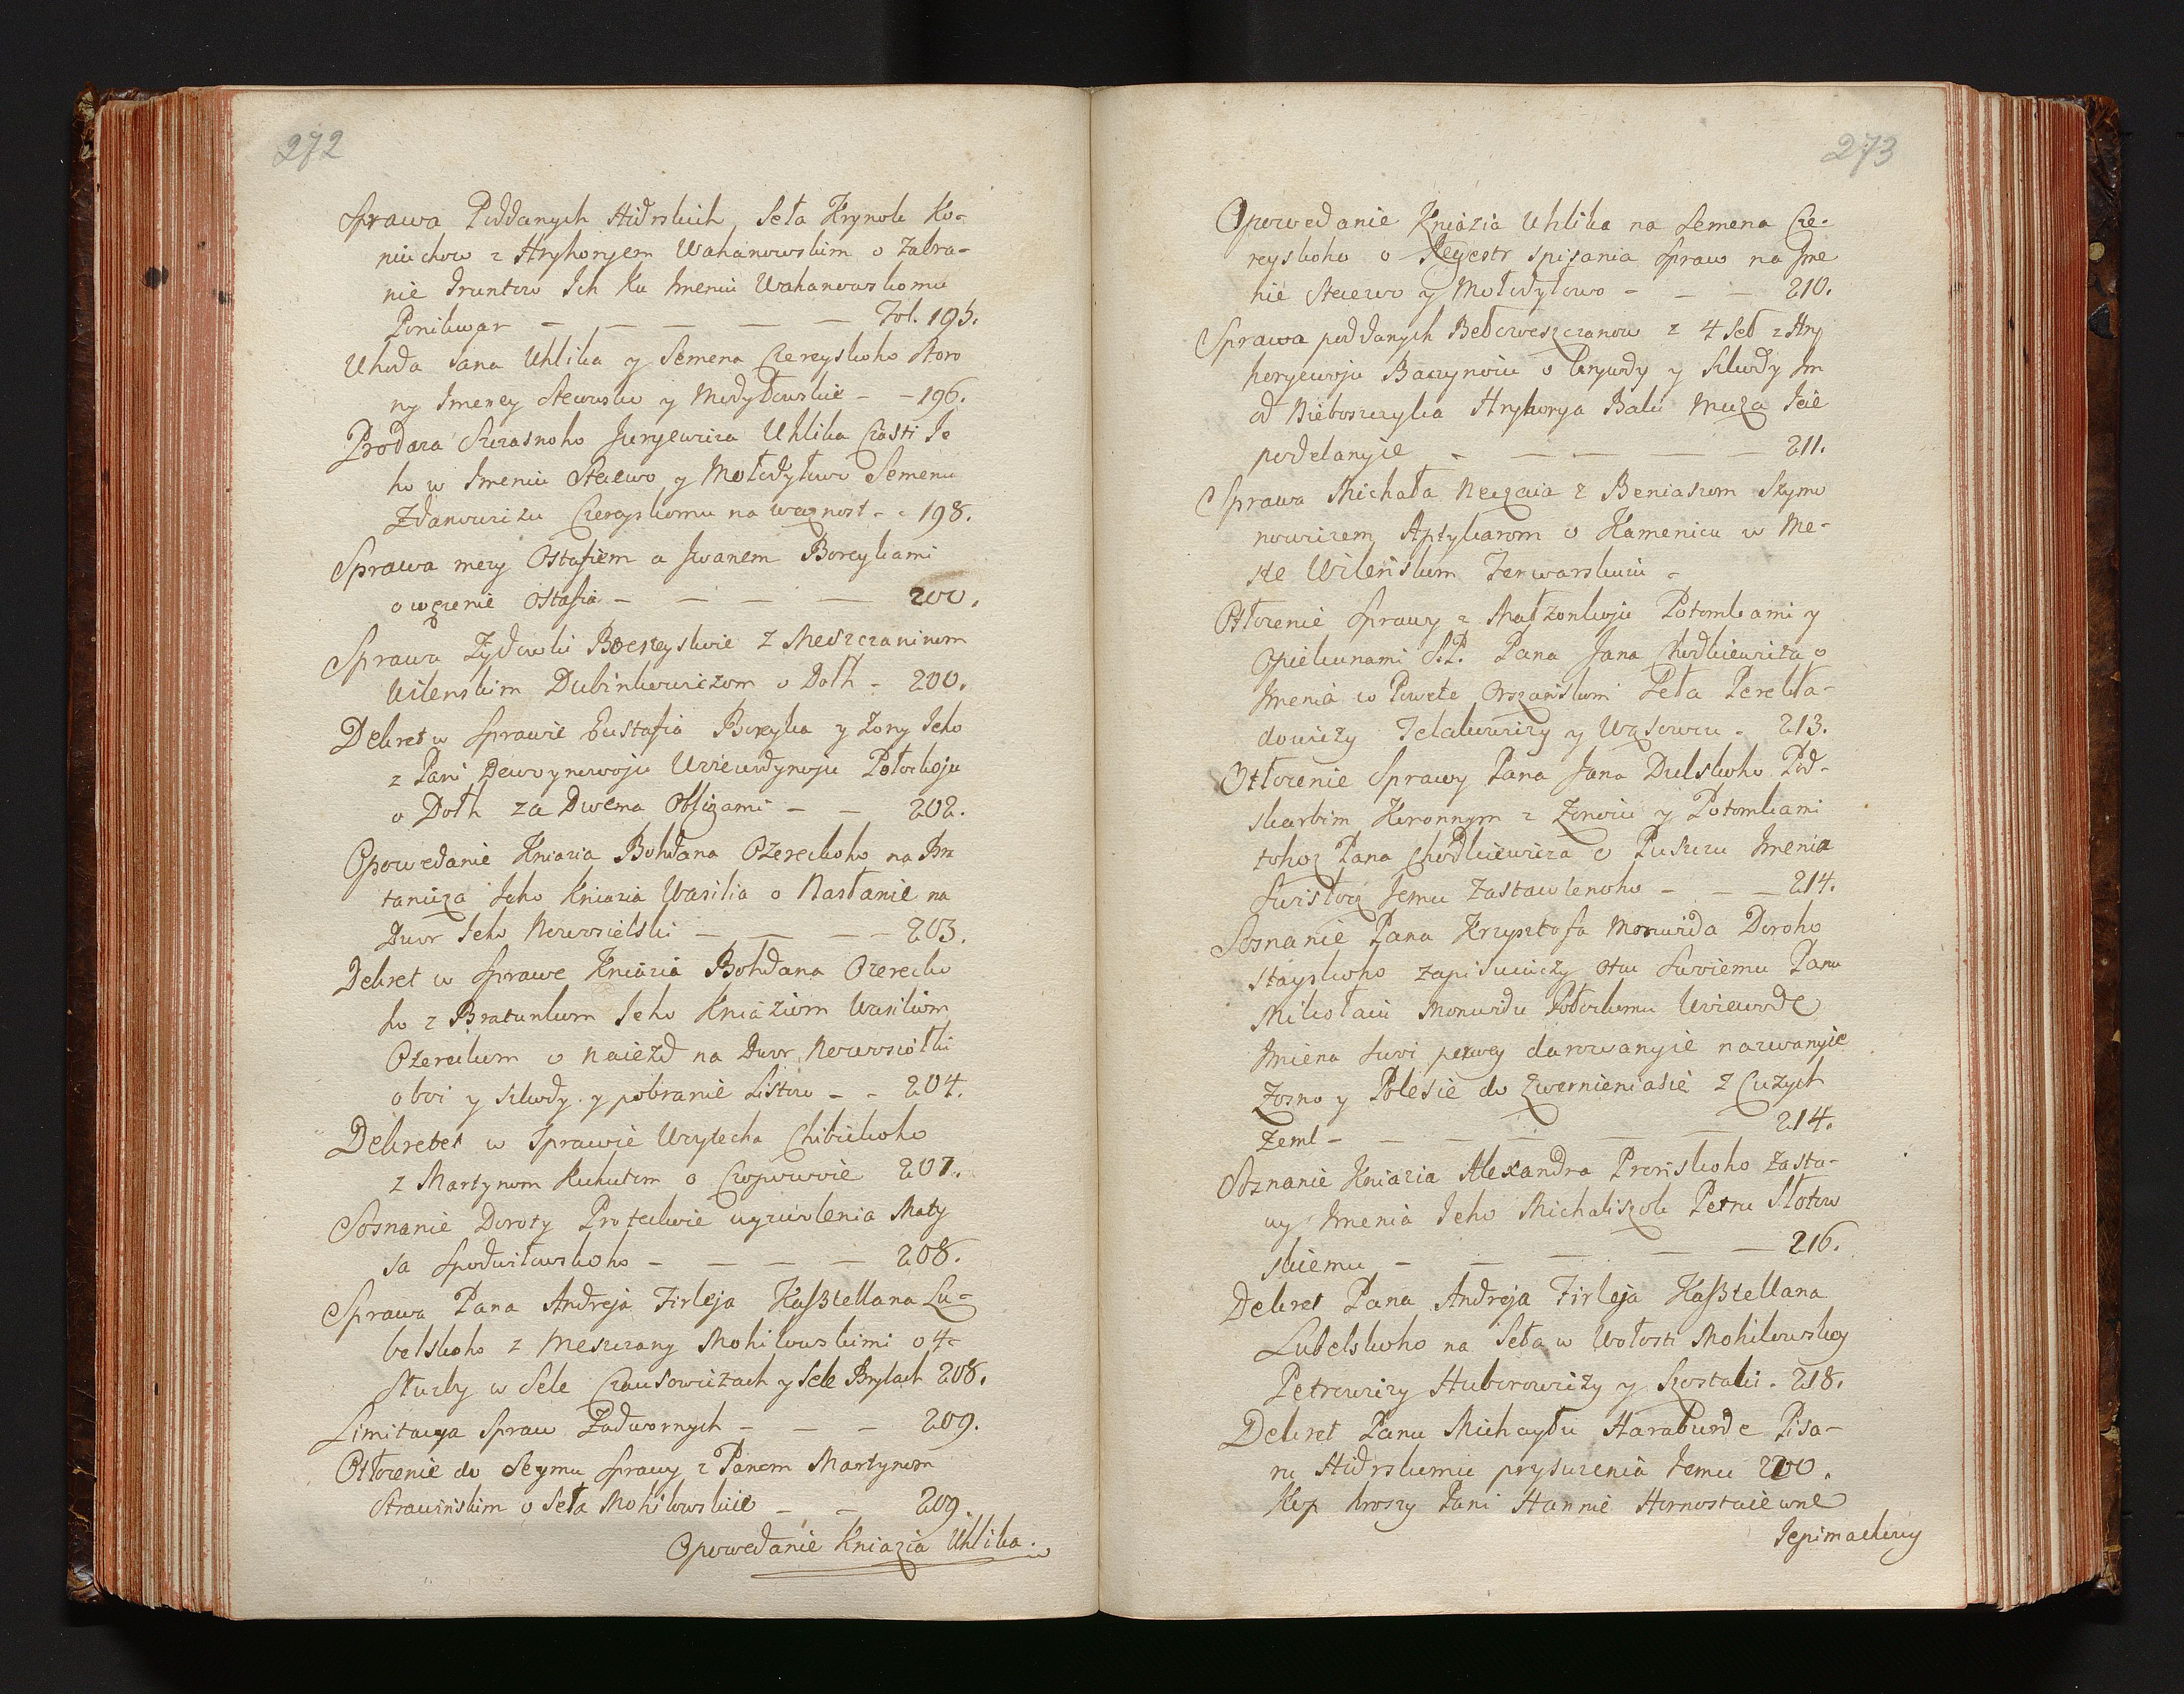 272
Sprawa Poddanych Hidrskich Seła Krynok Ko-
niuchow z Hryhoryem Wahanowskim o zabra-
nie Gruntow Ich Ku Imeniu Wahanowskomu
Ponikwar — — — — — Fol. 195.
Uhoda Jana Uhlika y Semena Czereyskoho Storo
ny Imeney Steiewsko y Mołodyłowskie - - 196.
Prodaża Szczasnoho Juryewicza Uhlika Części Je
ho w Imeniu Steiewo y Mołodyłowo Semenu
Zdanowiczu Czereyskomu na wecznost - - 198.
Sprawa mezy Ostafiem a Iwanem Boreykami
o wezenie Ostafia — — — — 200.
Sprawa Żydowki Beresteyskoie z Meszczaninom
Wilenskim Dubinkowiczom o Dołh - 200.
Dekret w Sprawie Eustafia Boreyka y Żony Jeho
z Pani Dewoynowoju Woiewodynoju Połockoju
o Dołh za Dwema Obligami — — 202.
Opowedanie Kniazia Bohdana Ożereckoho na Bra
tanicza Jeho Kniazia Wasilia o Nasłanie na
Dwor Jeho Nowosielski — — — — 203.
Dekret w Sprawe Kniazia Bohdana Ożerecko
ho z Bratankom Jeho Kniaziom Wasiliom
Ożereckom o Naiezd na Dwor Nowosiołki
o boi y szkody y pobranie Listow - - 204.
Dekretet w Sprawie Woytecha Chibickoho
z Martynom Kuhutom o Czopowoie 207.
Soznanie Doroty Proteckoie wyzwolenia Maty
sa Spodwiłowskoho — — — — 208.
Sprawa Pana Andreja Firleja Kasztellana Lu-
belskoho z Meszczany Mohilowskimi o 4
Służby w Sele Czausowiczach y Sele Brylach 208.
Limitacya Spraw Zadwornych — — — 209.
Otłożenie do Seymu Sprawy z Panom Martynom
Strawińskim o Seła Mohilowskiie — — 209.
Opowedanie Kniazia Uhlika.
273
Opowedanie Kniazia Uhlika na Semena Cze-
reyskoho o Regestr spisania Spraw na Ime
nie Steiewo y Mołodyłowo — — — 210.
Sprawa poddanych Bełoweszczanow z 4 Seł z Hry
horyewoju Baczynoiu o Krywdy y Szkody Im
od Nieboszczyka Hryhorya Baki Muża Jeie
podełanyie — — — — — 211.
Sprawa Michała Neczaia z Beniaszom Szymo
nowiczem Aptykarom o Kamenicu w Me-
ste Wileńskom Zerwarskuiu -
Otłożenie Sprawy z Małżonkoju Potomkami y
Opiekunami Ś.P. Pana Jana Chodkiewicza o
Imenia w Powete Orszańskom Seła Perekła-
dowiczy Telakowiczy y Wąsowcu - 213.
Otłożenie Sprawy Pana Jana Dulskoho Pod-
skarbim Koronnym z Żonoiu y Potomkami
tohoż Pana Chodkiewicza o Puszczu Imenia
Swisłocz Jemu Zastawlenoho — — — 214.
Soznanie Pana Krzysztofa Monwida Doroho
stayskoho zapisuiuczy Otcu Swoiemu Panu
Mikołaiu Monwidu Połockomu Woiewode
Imiena Swoi perwey darowanyie nazwanyie
Żosno y Polesie do zwernieniasie z Cużych
Zeml - — — — — — 214.
Soznanie Kniazia Alexandra Prońskoho Zasta-
wy Imenia Jeho Michaliszok Petru Słotow
skiemu - — — — — 216.
Dekret Pana Andreja Firleja Kasztellana
Lubelskoho na Seła w Wołosti Mohilowskoy
Petrowiczy Huborowiczy y Szostaki - 218.
Dekret Panu Michayłu Haraburde Pisa-
ru Hidrskomu prysużenia Jemu 200.
Kop hroszy Pani Hannie Hornostaiewne
Jepimachowy